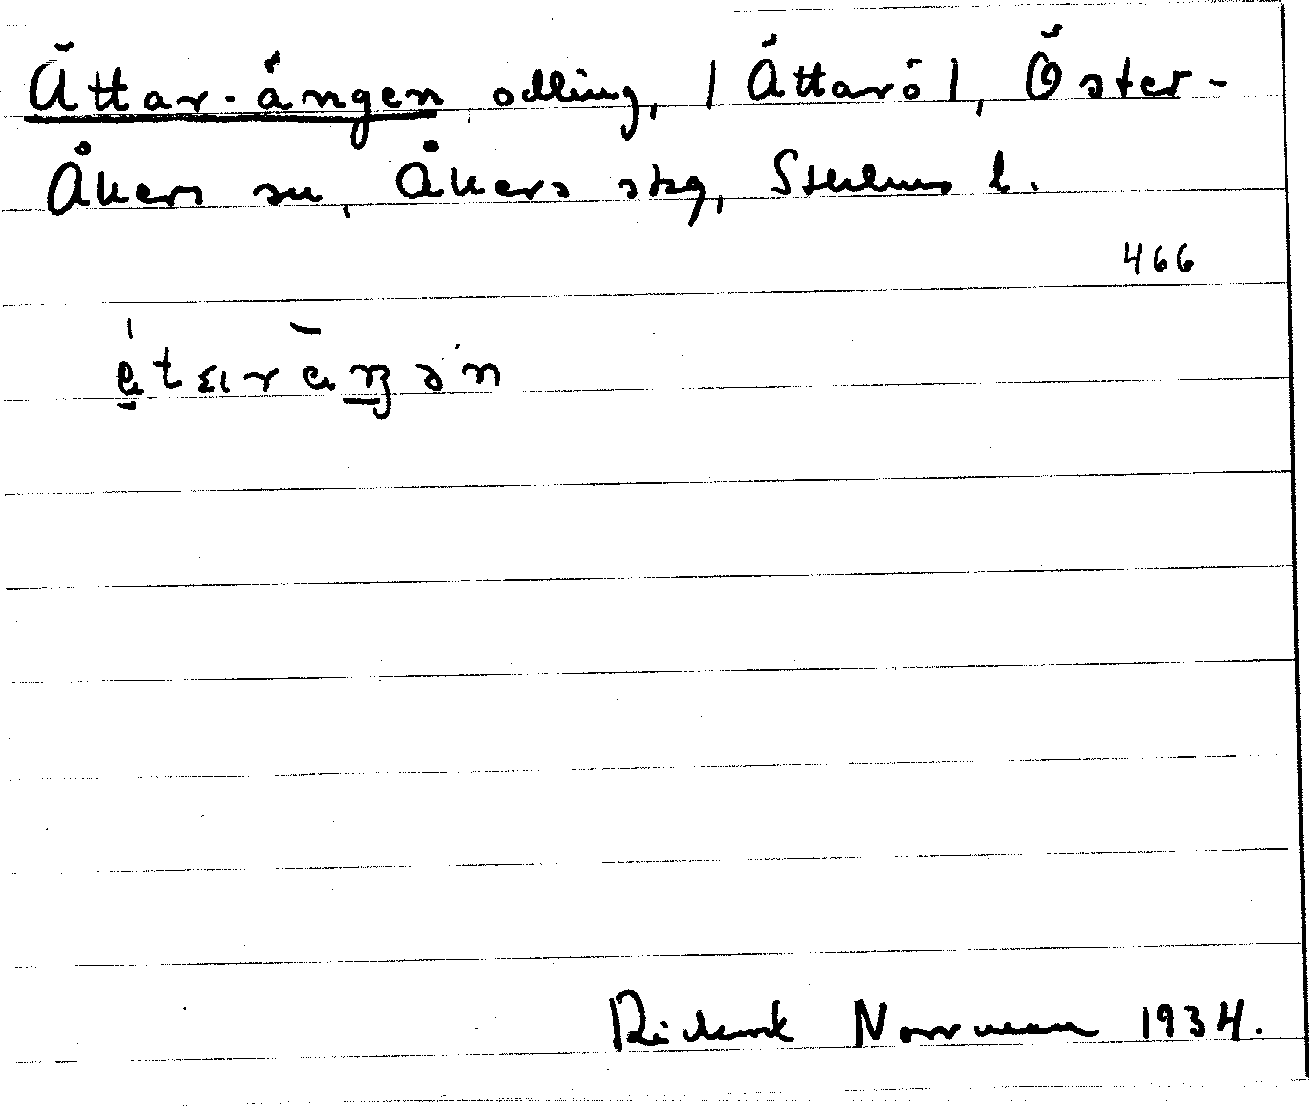 Ättar-ängen odling, | Ättarö |, Öster-
Åkers sn, Åkers skg, Sthlms l.
466
Rickard Norrman 1934.